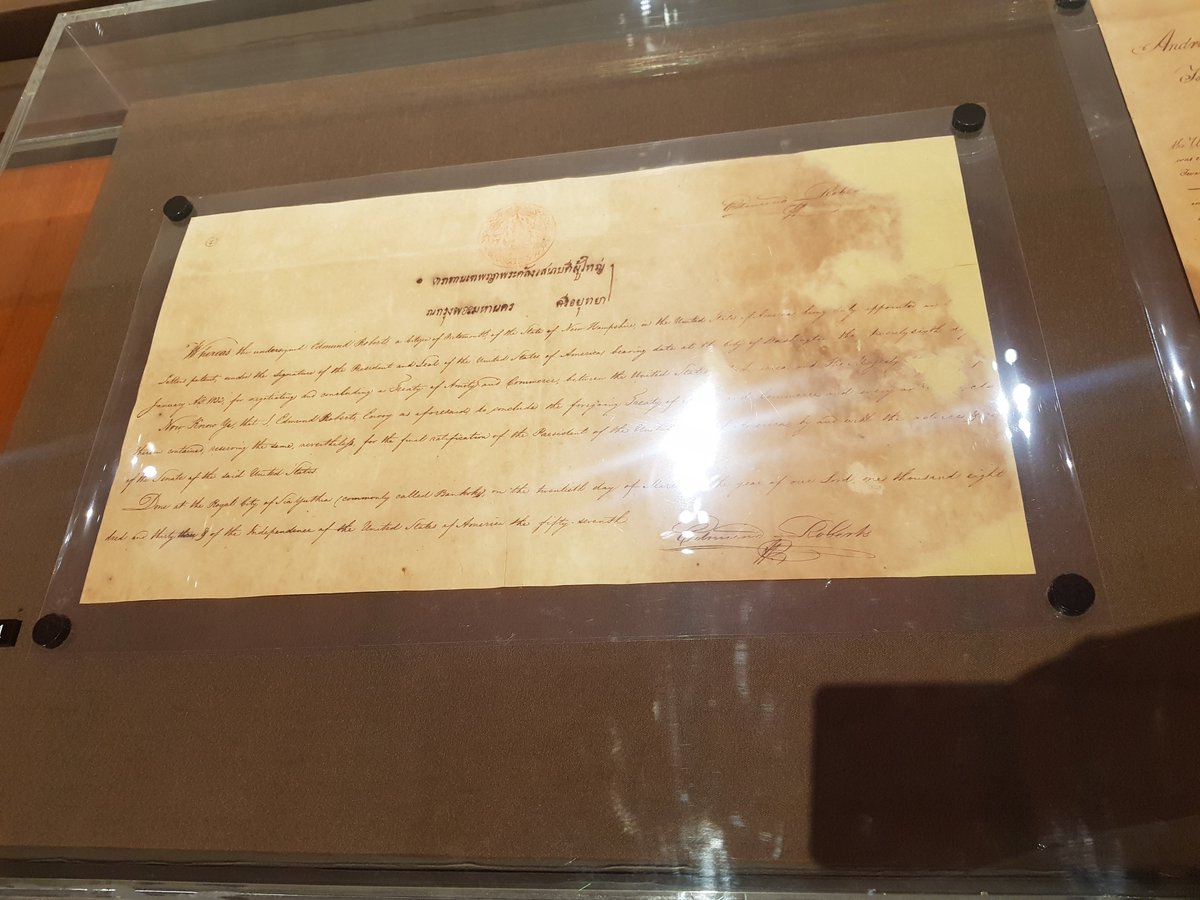 Edmund Rober
ณกรุงพระมหานคร ศรีอยุทยา
Whereas the undersigned Edmund Roberts a Citizen of Portsmouth, of the State of New-Hampshire, in the United States of America, being duly appointed
Letters patent, under the Signature of the President and Seal of the United States of America, bearing date at the City of Washington the twenty sixth
January AD 1832, for negotiating and concluding a Treaty of Amity and Commerce, between the United States
Now Know Ye, that I Edmund Roberts, Envoy as aforesaid, do conclude the foregoing Treaty of Commerce and every
therein contained, reserving the same, nevertheless, for the final ratification of the President of the United by and with the
of the Senate of the said United States
Done at the Royal City of Sia Yuthia (commonly called Bankok) on the twentieth day of year of our Lord, one thousand eight
dred and thirty three & of the Independence of the United States of America the fifty-seventh
Edmund Roberts
Andre
the
was
Twe